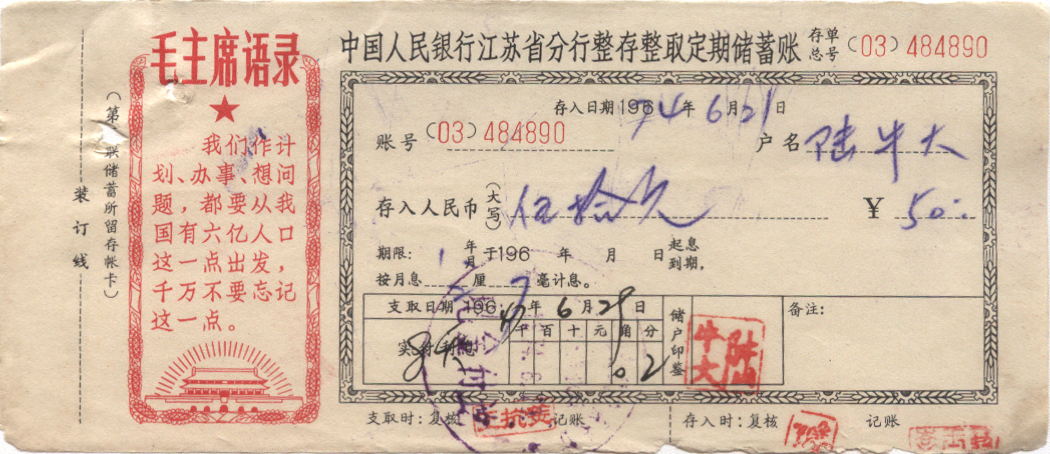 中国人民银行江苏省分行整存整取定期储蓄账
存单总号 (03) 484890
毛主席语录
我们作计
划、办事、想问
题，都要从我
国有六亿人口
这一点出发，
千万不要忘记
这一点。
(第 联储蓄所留存帐卡)
装订线
存入日期 196 74年6月21日
账号 (03) 484890 户名 陆牛大
存入人民币(大写) 伍拾元 ¥ 50
期限: 1 年月于196 年 月 日起息到期,
按月息 厘 毫计息。
支取日期 196 年6月29日 储户印鉴 备注:
千百十元角分
实付利息 .02
陆牛大
支取时:复核 记账 存入时:复核 记账